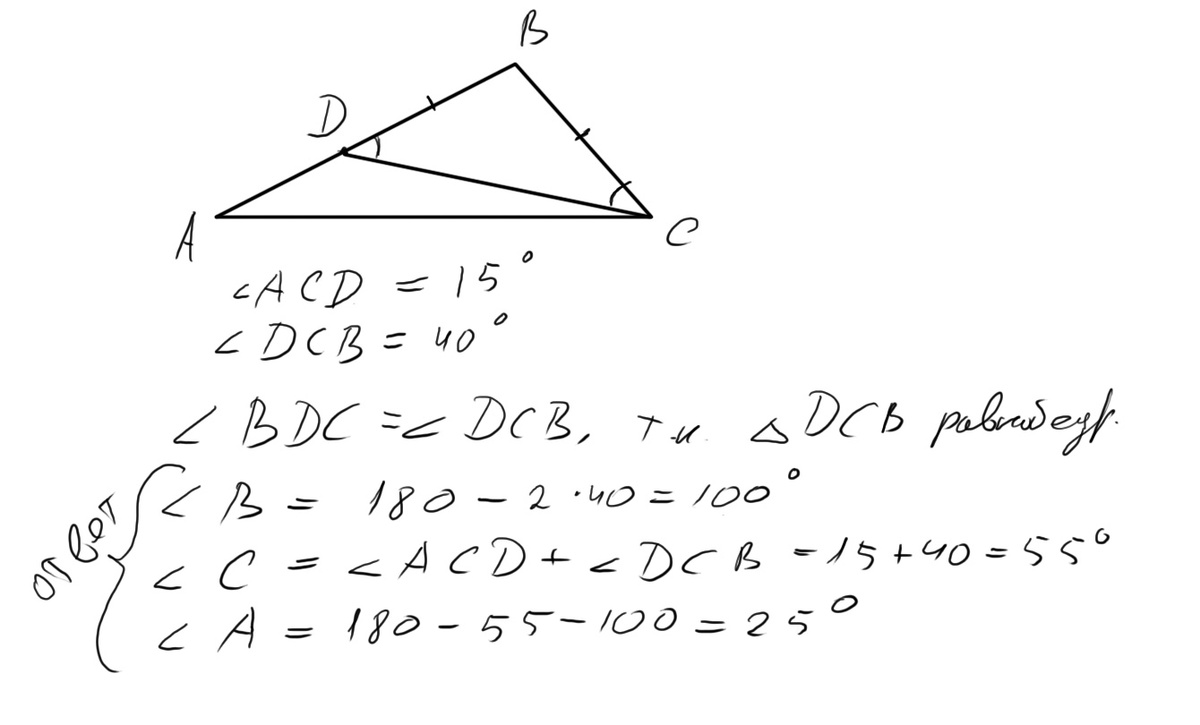 B
D
A
C
∠ACD = 15°
∠DCB = 40°
∠BDC = ∠DCB, т.к. △DCB равнобедр.
ответ
∠B = 180 - 2·40 = 100°
∠C = ∠ACD + ∠DCB = 15 + 40 = 55°
∠A = 180 - 55 - 100 = 25°